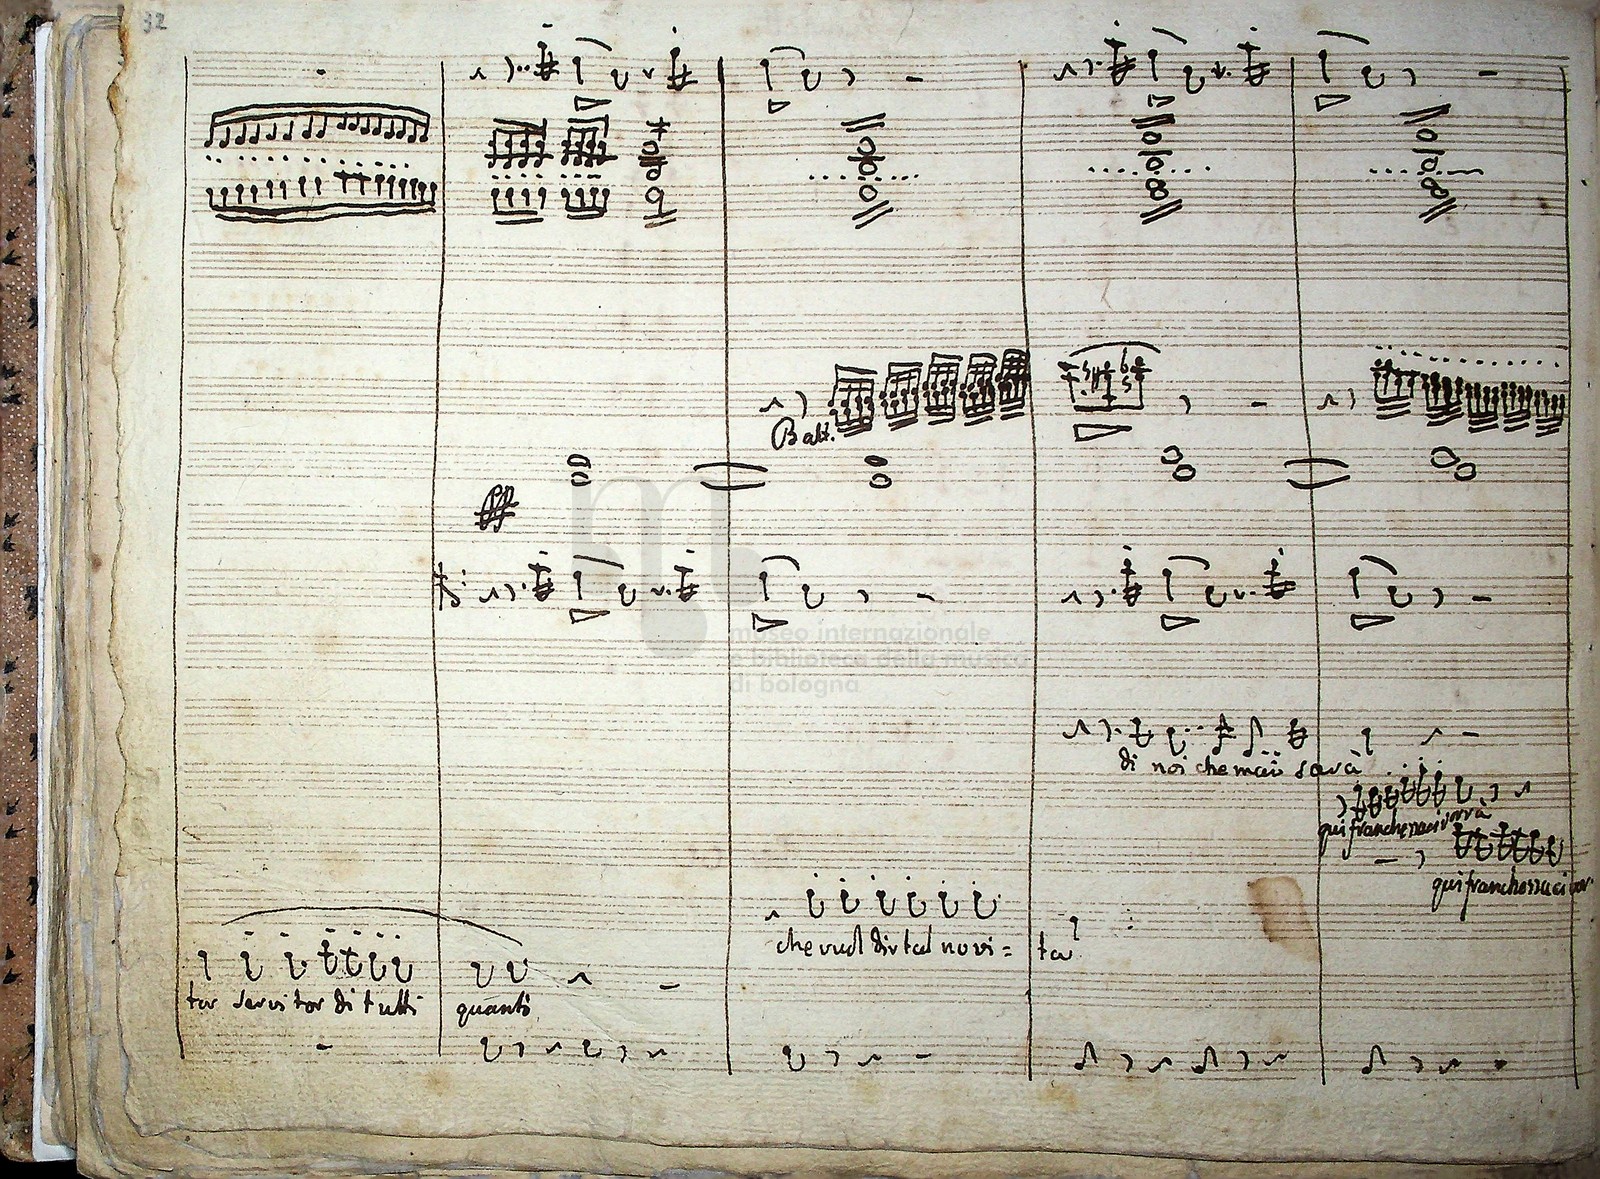 32
Batt.
ff
museo internazionale
e biblioteca della musica
di bologna
di noi che mai sarà
qui francheza ci vorrà
qui franchezza ci vor
che vuol dir tal novi=
ta
tor servitor di tutti
quanti